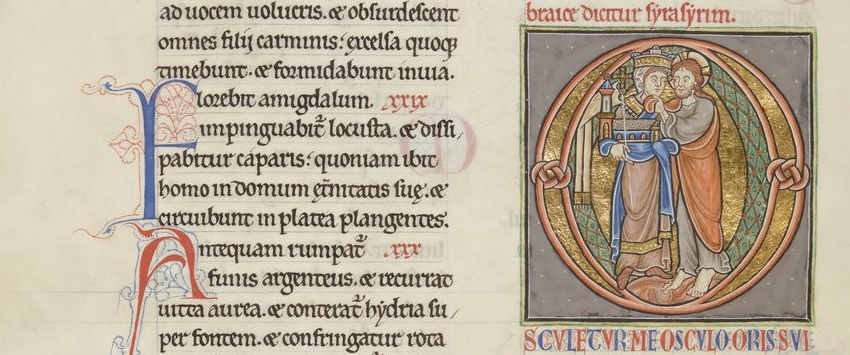 ad uocem uolucris. & obsurdescent
omnes filię carminis: excelsa quoq;
timebunt. & formidabunt in uia.
Florebit amigdalum. xxix
impinguabit̄ locusta. & dissi/
pabitur caparis: quoniam ibit
homo in domum ęt̄nitatis suę. &
circuibunt in platea plangentes.
Antequam rumpat̄ xxx
funis argenteus. & recurrat
uitta aurea. & conterat̄ hydria su/
per fontem. & confringatur rota
braice dicitur syrasyrim.
SCVLETVR ME OSCVLO ORIS SVI